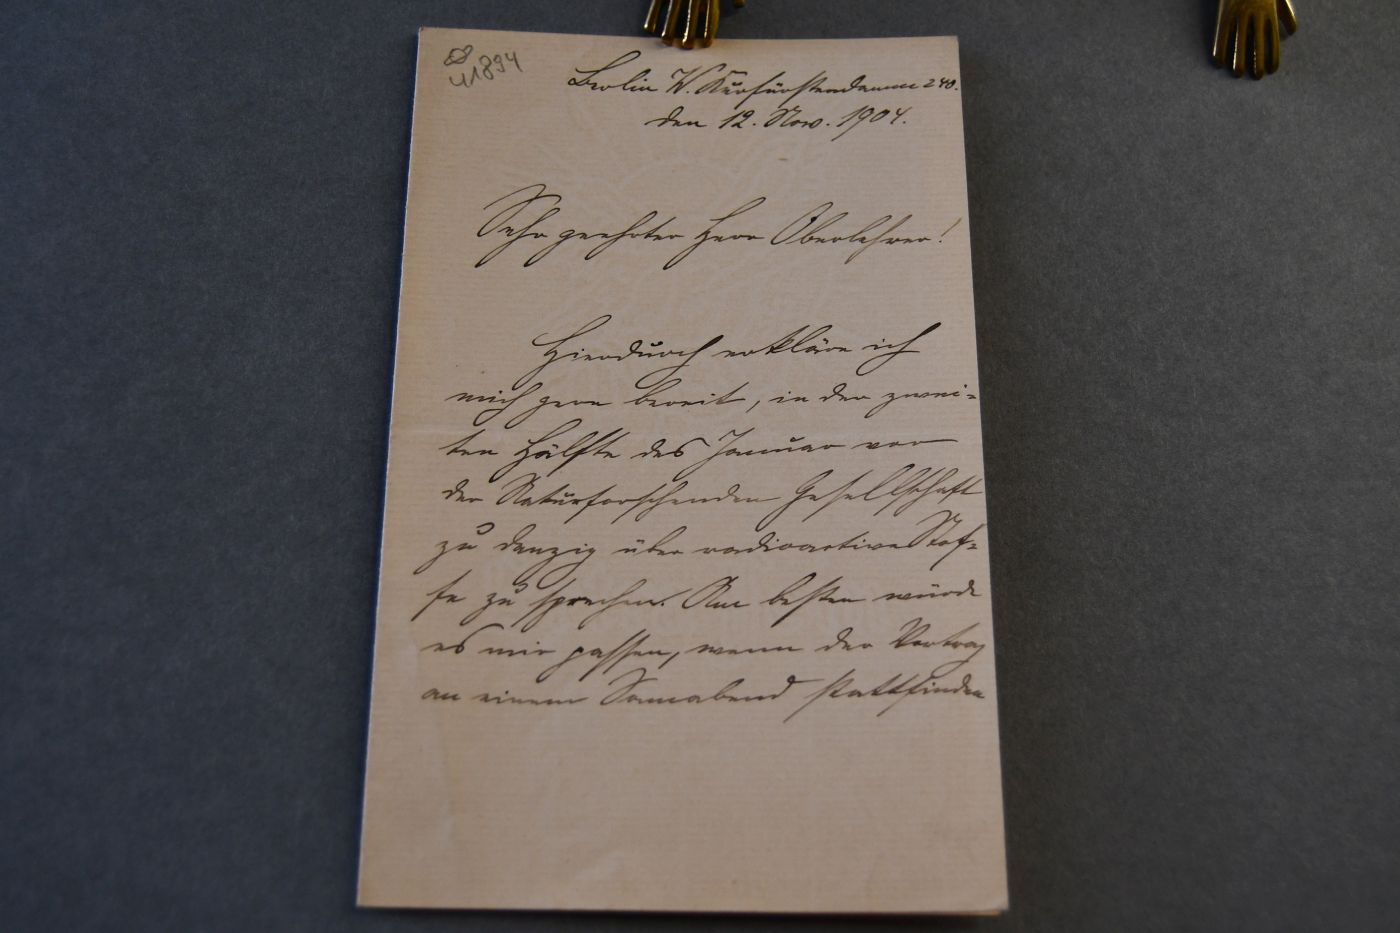 41894
Berlin W. Kurfürstendamm 240.
den 12. Nov. 1904.
Sehr geehrter Herr Oberlehrer!
Hierdurch erkläre ich
mich gern bereit, in der zwei-
ten Hälfte des Januar vor
der Naturforschenden Gesellschaft
zu Danzig über radioactive Stof-
fe zu sprechen. Am besten würde
es mir passen, wenn der Vortrag
an einem Sonnabend stattfinden